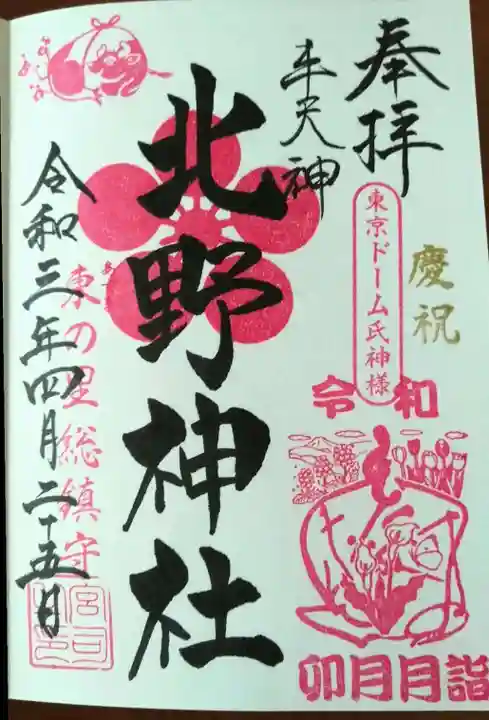 奉拝
慶祝
東京ドーム氏神様
令和
卯月月詣
牛天神
北野神社
東の里総鎮守
令和三年四月二十五日